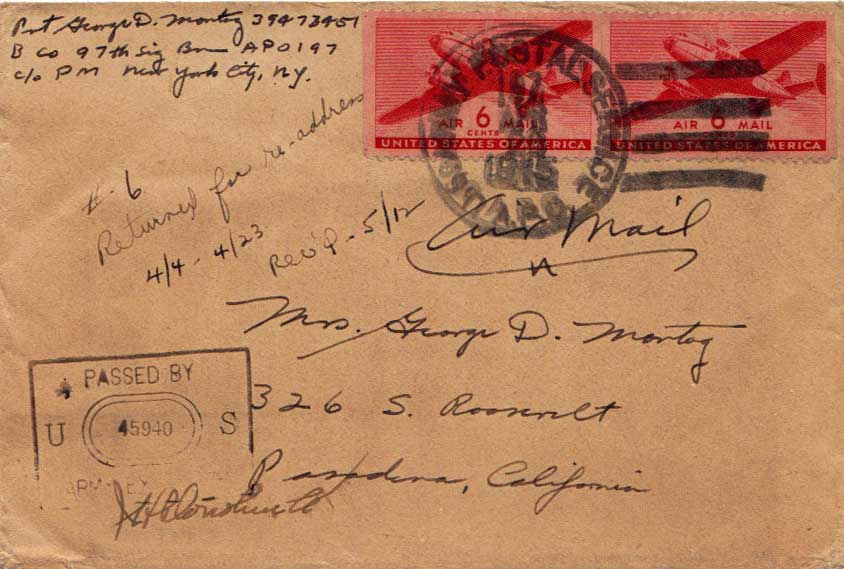 Pvt George D. Montag 39473451
B Co 97th Sig Bn APO 197
c/o PM New York City, N.Y.
AIR 6 MAIL
CENTS
UNITED STATES OF AMERICA
AIR 6 MAIL
CENTS
UNITED STATES OF AMERICA
POSTAL SERVICE
1945
# 6
Returned for re-address
4/4 - 4/23
Rec'd - 5/12
Air Mail
Mrs. George D. Montag
326 S. Roosevelt
Pasadena, California
PASSED BY
U 45940 S
ARMY